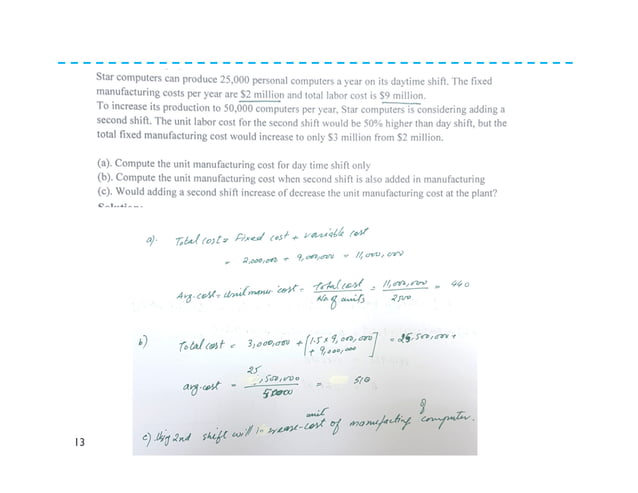 Star computers can produce 25,000 personal computers a year on its daytime shift. The fixed
manufacturing costs per year are $2 million and total labor cost is $9 million.
To increase its production to 50,000 computers per year, Star computers is considering adding a
second shift. The unit labor cost for the second shift would be 50% higher than day shift, but the
total fixed manufacturing cost would increase to only $3 million from $2 million.
(a). Compute the unit manufacturing cost for day time shift only
(b). Compute the unit manufacturing cost when second shift is also added in manufacturing
(c). Would adding a second shift increase of decrease the unit manufacturing cost at the plant?
a). Total cost = Fixed cost + variable cost
= 2,000,000 + 9,000,000 = 11,000,000
Avg. cost = Unit cost = Total cost / No. of units = 11,000,000 / 2500 = 440
b) Total cost = 3,000,000 + [1.5 x 9,000,000 + 9,000,000] = 25,500,000
avg. cost = 25,500,000 / 50000 = 510
c) 2nd shift will increase unit cost of computer.
13